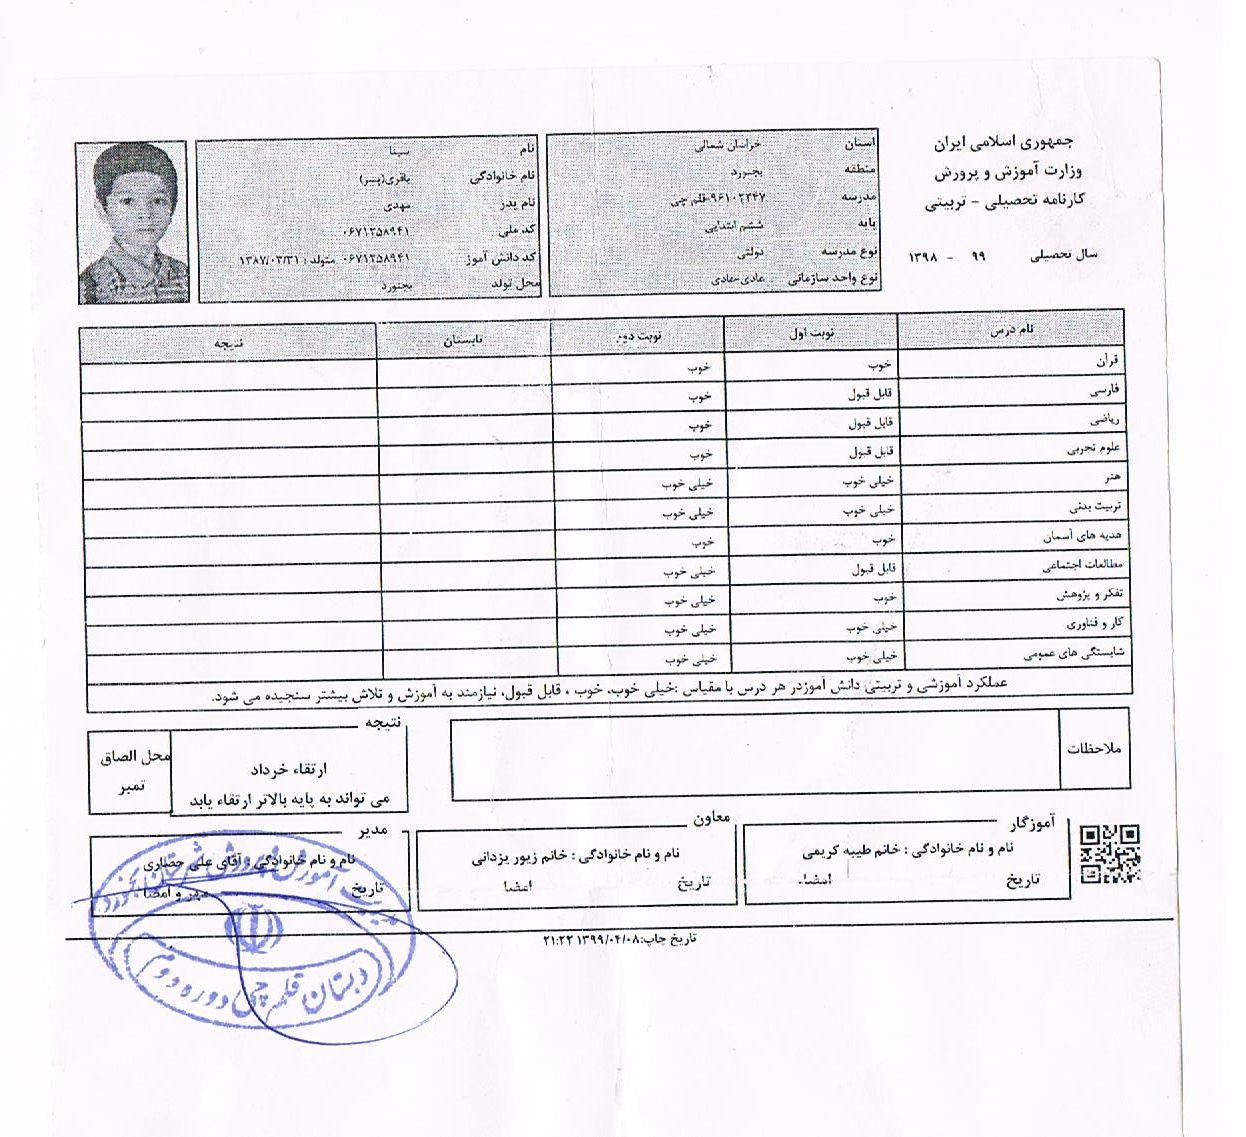 جمهوری اسلامی ایران
وزارت آموزش و پرورش
کارنامه تحصیلی - تربیتی
سال تحصیلی ۹۹ - ۱۳۹۸
استان خراسان شمالی
منطقه بجنورد
مدرسه ۹۶۱۰۲۲۴۷-قلم چی
پایه ششم ابتدایی
نوع مدرسه دولتی
نوع واحد سازمانی عادی-عادی
نام سینا
نام خانوادگی باقری(پسر)
نام پدر مهدی
کد ملی ۰۶۷۱۲۵۸۹۴۱
کد دانش آموز ۰۶۷۱۲۵۸۹۴۱ متولد : ۱۳۸۷/۰۳/۳۱
محل تولد بجنورد
نام درس نوبت اول نوبت دوم تابستان نتیجه
قرآن خوب خوب
فارسی قابل قبول خوب
ریاضی قابل قبول خوب
علوم تجربی قابل قبول خوب
هنر خیلی خوب خیلی خوب
تربیت بدنی خیلی خوب خیلی خوب
هدیه های آسمان خوب خوب
مطالعات اجتماعی قابل قبول خیلی خوب
تفکر و پژوهش خوب خیلی خوب
کار و فناوری خیلی خوب خیلی خوب
شایستگی های عمومی خیلی خوب خیلی خوب
عملکرد آموزشی و تربیتی دانش آموزدر هر درس با مقیاس :خیلی خوب، خوب ، قابل قبول، نیازمند به آموزش و تلاش بیشتر سنجیده می شود.
ملاحظات
نتیجه
ارتقاء خرداد
می تواند به پایه بالاتر ارتقاء یابد
محل الصاق
تمبر
آموزگار
نام و نام خانوادگی : خانم طیبه کریمی
تاریخ امضاء
معاون
نام و نام خانوادگی : خانم زیور یزدانی
تاریخ امضا
مدیر
نام و نام خانوادگی : آقای علی حصاری
تاریخ مهر و امضا
تاریخ چاپ:۱۳۹۹/۰۴/۰۸ ۲۱:۲۲
آموزش و پرورش شهرستان بجنورد
دبستان قلم چی دوره دوم